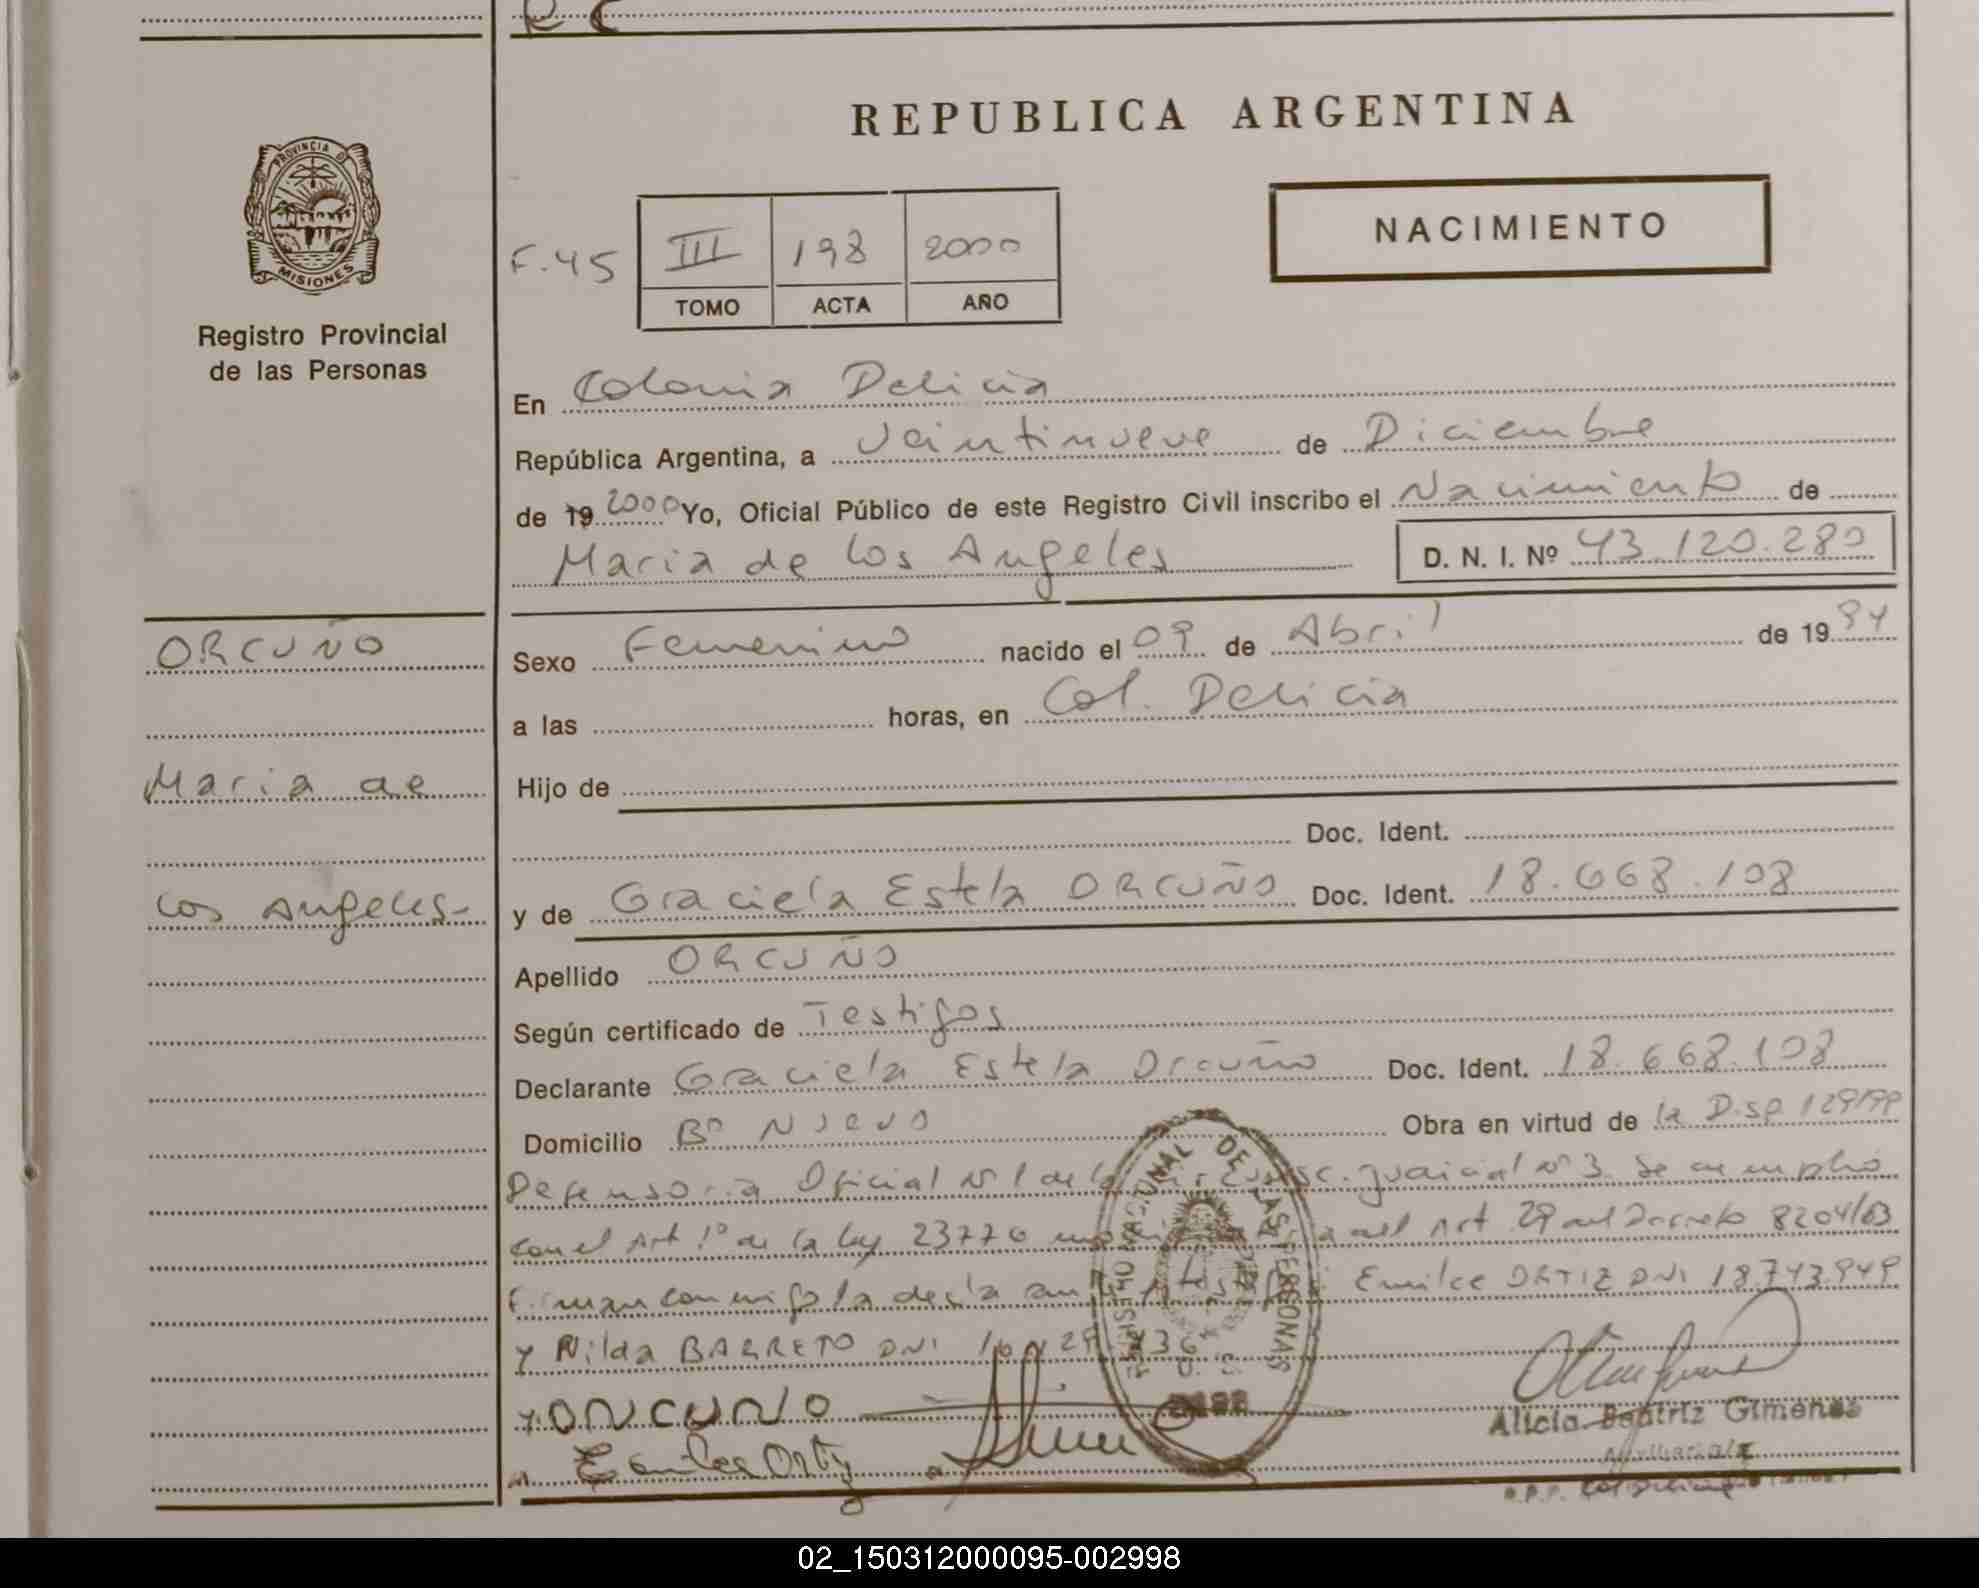 REPUBLICA ARGENTINA
PROVINCIA DE
MISIONES
Registro Provincial
de las Personas
NACIMIENTO
F.45 III 198 2000
TOMO ACTA AÑO
En Colonia Delicia
República Argentina, a Veintinueve de Diciembre
de 19 2000 Yo, Oficial Público de este Registro Civil inscribo el Nacimiento de
Maria de los Angeles D. N. I. Nº 43.120.280
ORCUÑO
Maria de
los Angeles-
Sexo Femenino nacido el 09 de Abril de 19 94
a las horas, en Col. Delicia
Hijo de
Doc. Ident.
y de Graciela Estela ORCUÑO Doc. Ident. 18.668.108
Apellido ORCUÑO
Según certificado de Testigos
Declarante Graciela Estela Orcuño Doc. Ident. 18.668.108
Domicilio Bº Nuevo Obra en virtud de la Disp 129/99
Defensoria Oficial Nº 1 de la Judicial Nº 3. Se cumplió
con el Art 1º de la Ley 23776 del Art 29 del Decreto 8204/63
Firman conmigo la decla Emilce ORTIZ DNI 18.743.949
y Nilda BARRETO DNI
REGISTRO NACIONAL DE LAS PERSONAS
ORCUÑO
Alicia Beatriz Gimenez
02_150312000095-002998